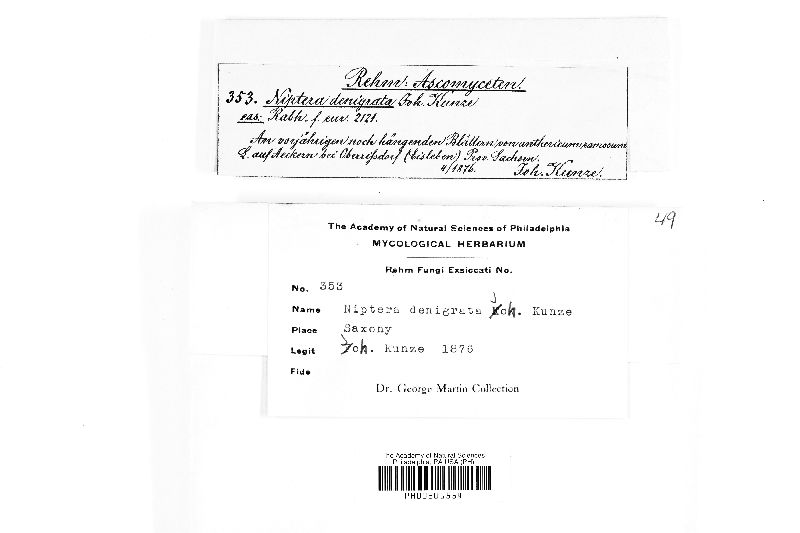 Rehm: Ascomyceten.
353. Niptera denigrata Joh. Kunze
eas: Rabh. f. eur. 2121.
An vorjährigen noch hängenden Blättern von anthericum ramosum
L. auf Aeckern bei Oberrissdorf (Eisleben) Prov. Sachsen.
4/1876. Joh. Kunze.
49
The Academy of Natural Sciences of Philadelphia
MYCOLOGICAL HERBARIUM
Rehm Fungi Exsiccati No.
No. 353
Name Niptera denigrata Joh. Kunze
Place Saxony
Legit Joh. Kunze 1876
Fide
Dr. George Martin Collection
The Academy of Natural Sciences
Philadelphia, PA USA (PH)